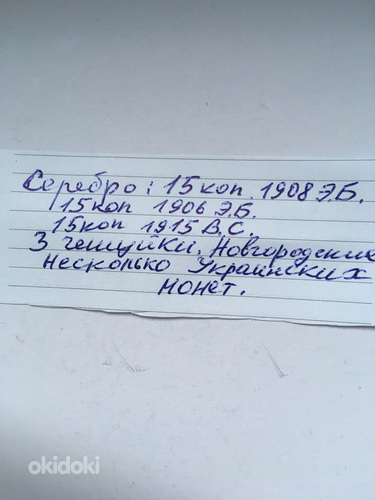 Серебро: 15 коп. 1908 Э.Б.
15 коп 1906 Э.Б.
15 коп 1915 В.С.
3 чешуйки. Новгородские
несколько Украинских
монет.
okidoki